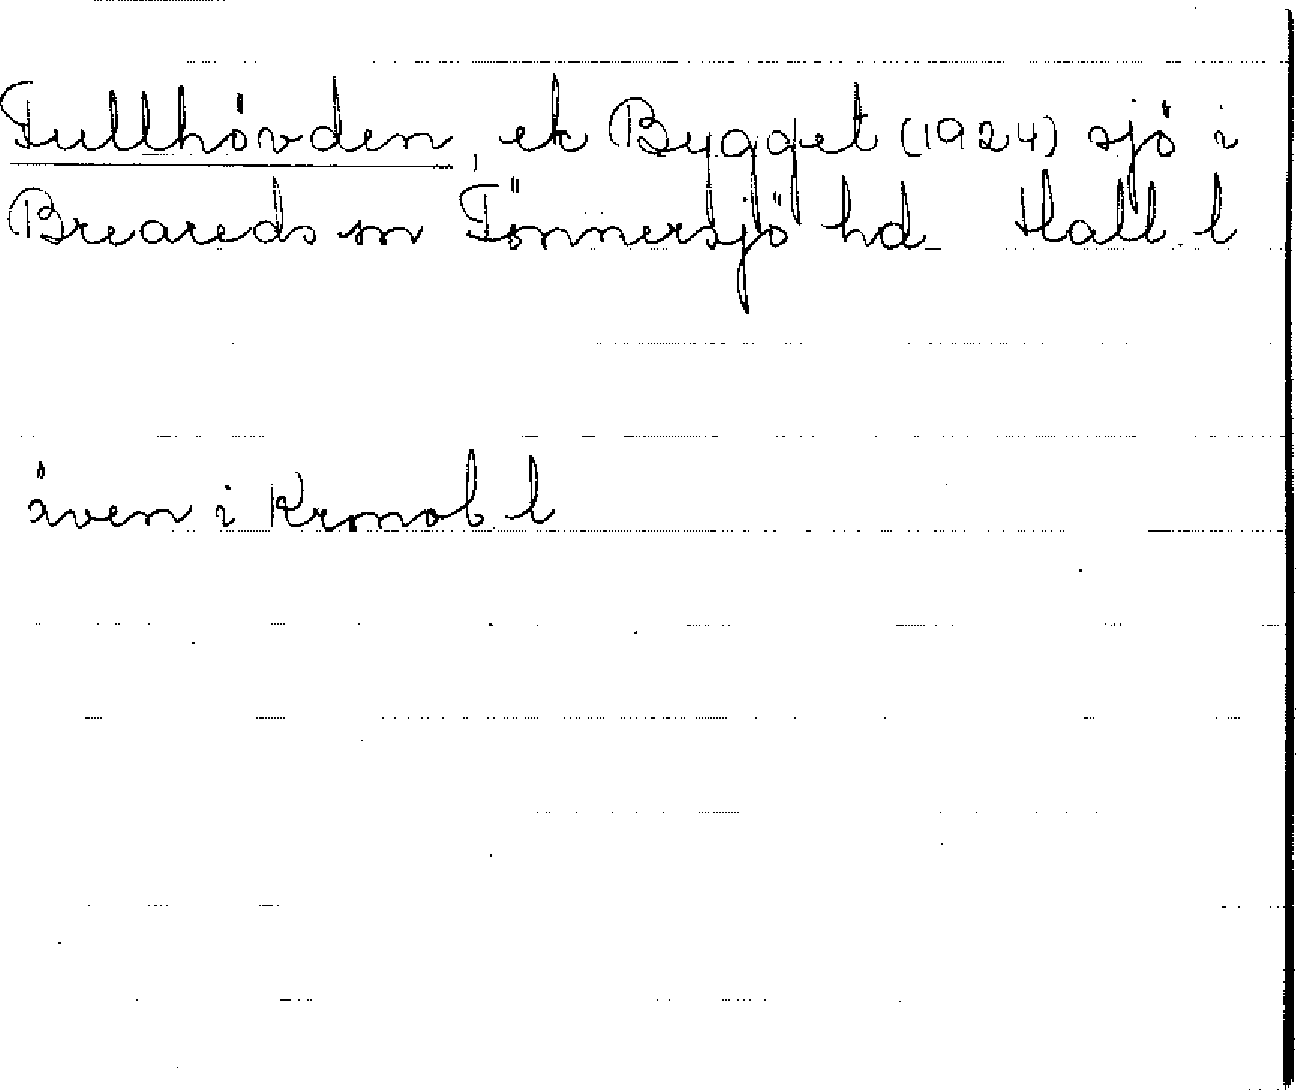 Tullhövden, ek Bygget (1924) sjö i
Breareds sn Tönnersjö hd Hall l
även i Kronob l